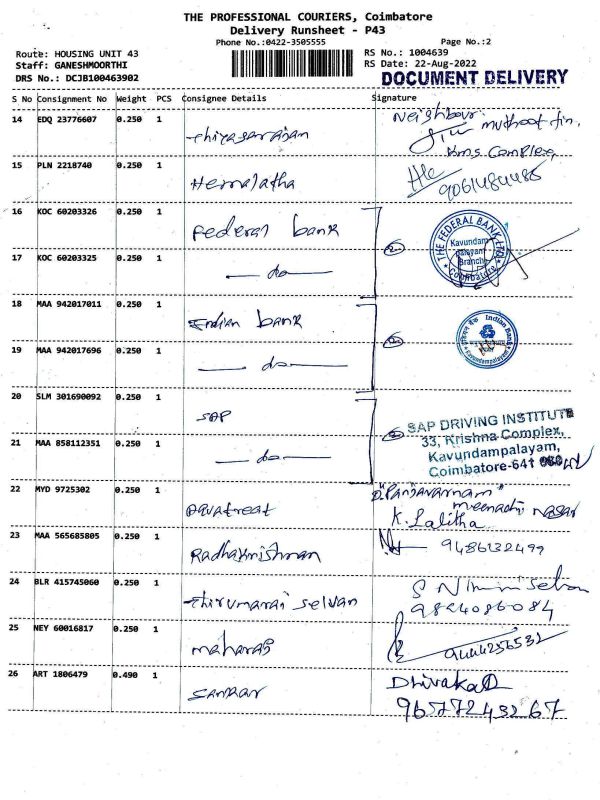 THE PROFESSIONAL COURIERS, Coimbatore
Delivery Runsheet - P43
Phone No.:0422-3505555 Page No.:2
Route: HOUSING UNIT 43 RS No.: 1004639
Staff: GANESHMOORTHI RS Date: 22-Aug-2022
DRS No.: DCJB100463902 DOCUMENT DELIVERY
S No Consignment No Weight PCS Consignee Details Signature
14 EDQ 23776607 0.250 1 Thiyagarajan Neighbour
muthoot fin,
kms Complex,
15 PLN 2218740 0.250 1 Hemalatha
16 KOC 60203326 0.250 1 Federal bank
THE FEDERAL BANK LTD
Kavundam
palayam
Branch
Coimbatore
17 KOC 60203325 0.250 1 — do —
18 MAA 942017011 0.250 1 Indian bank
Indian Bank
Kavundampalayam
19 MAA 942017696 0.250 1 — do —
20 SLM 301690092 0.250 1 SAP
SAP DRIVING INSTITUTE
33, Krishna Complex,
21 MAA 858112351 0.250 1 — do —
Kavundampalayam,
Coimbatore-641
22 MYD 9725302 0.250 1 Aquatreat
meenachi Nagar
K. Lalitha
23 MAA 565685805 0.250 1 Radhakrishnan 9486132499
24 BLR 415745060 0.250 1 Thirumarai selvan
9894086084
25 NEY 60016817 0.250 1 maharaj 9444256532
26 ART 1806479 0.490 1 Sankar Dhivakar
9677243267